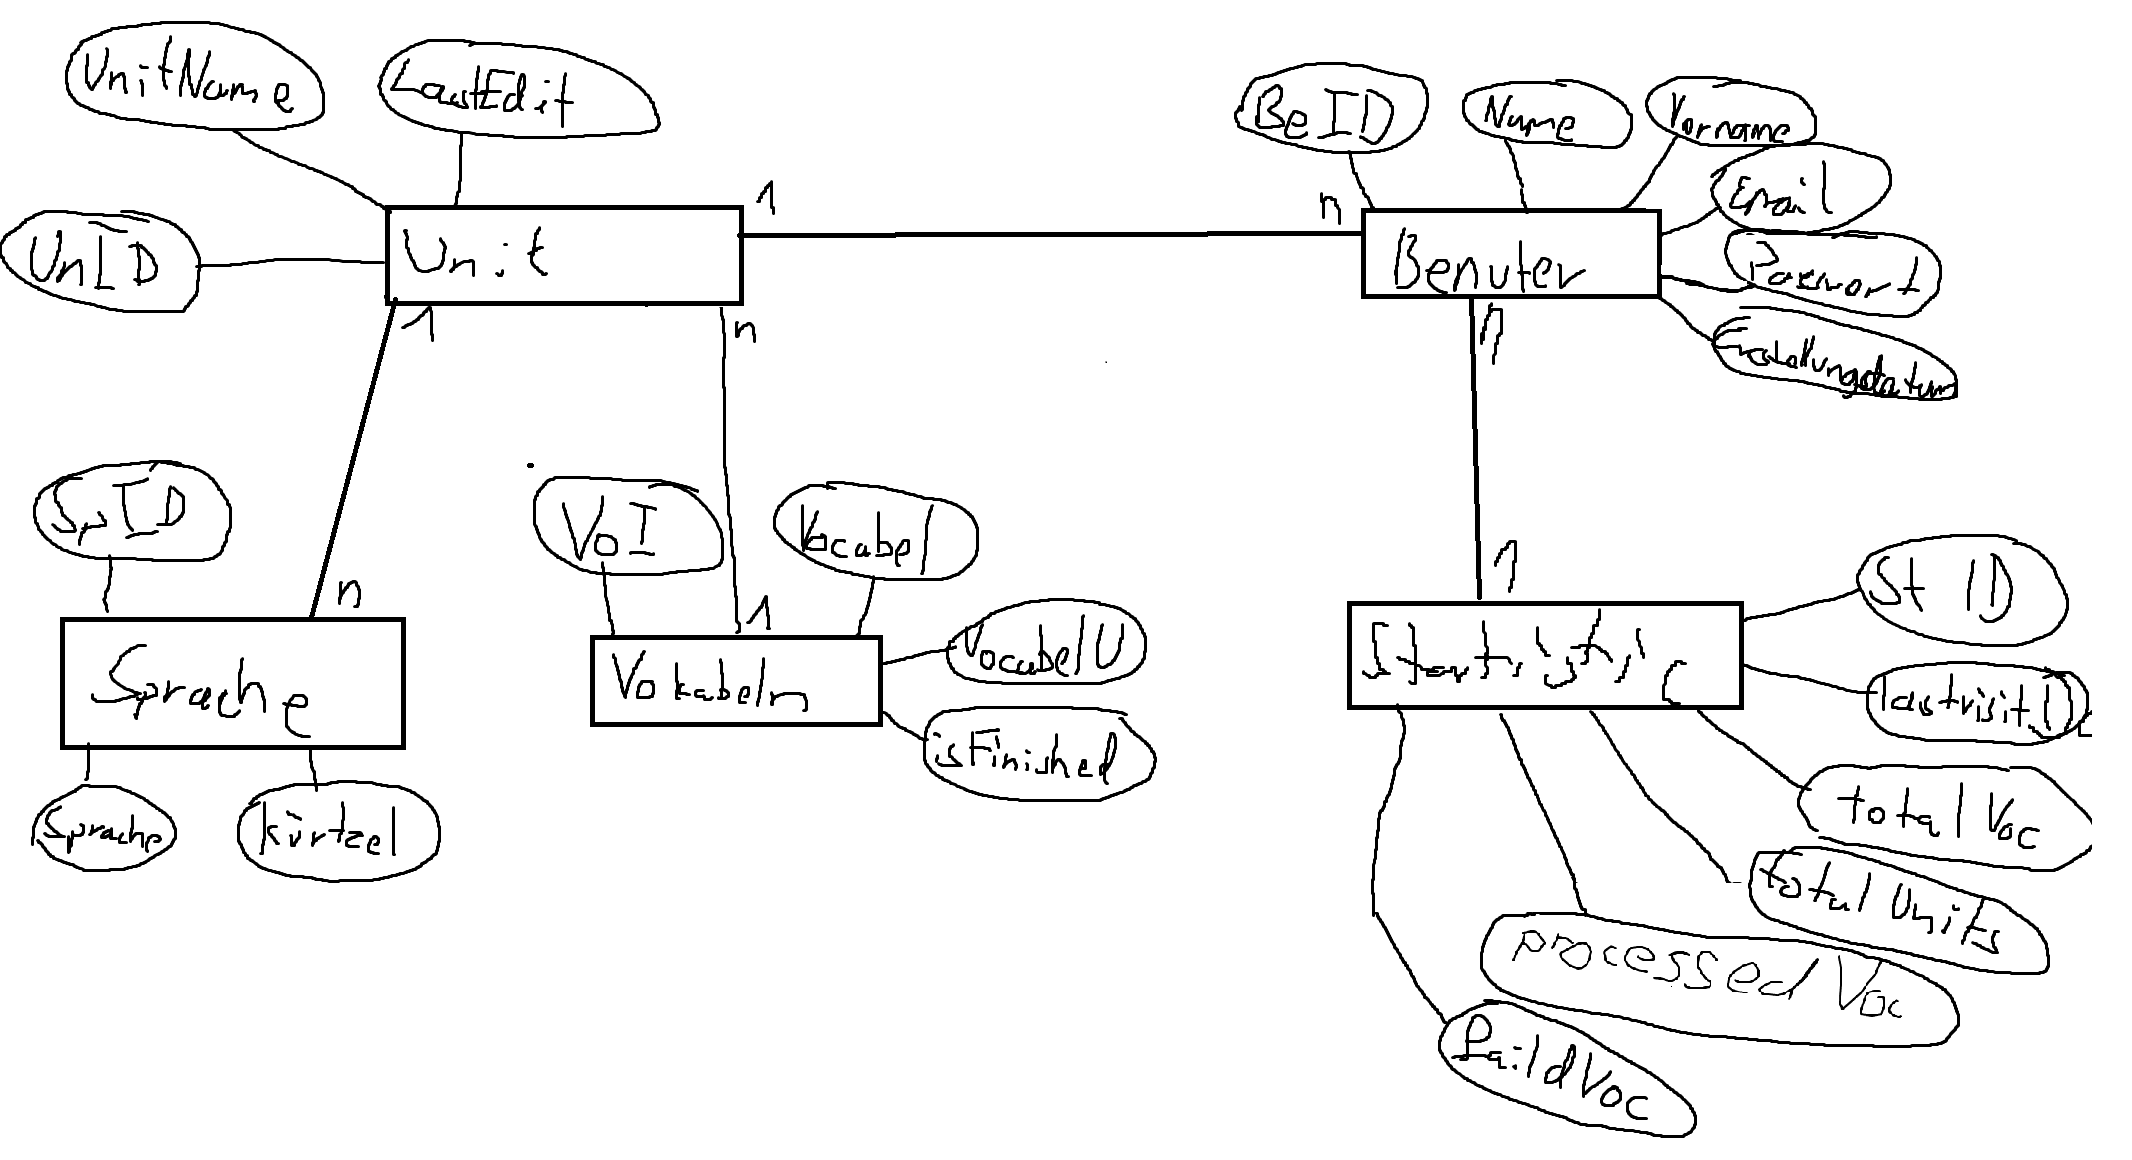 UnitName
LastEdit
UnID
Unit
1
n
1
n
BeID
Name
Vorname
Email
Passwort
Erstellungsdatum
Benuter
n
1
SpID
n
Sprache
Sprache
kürtzel
VoI
Vocabel
1
Vokabeln
VocabelU
isFinished
Startistic
St ID
lastvisitD
total Voc
total Units
processed Voc
faildVoc